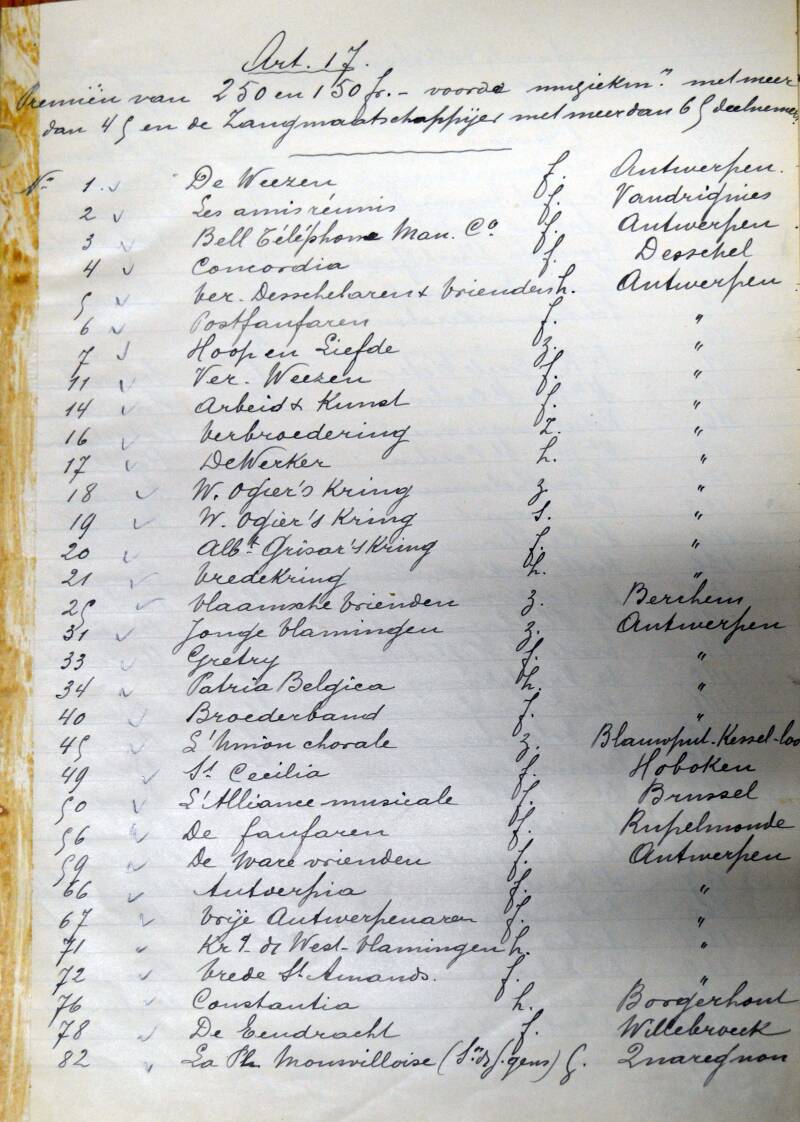 Art. 17.
Premiën van 250 en 150 fr. - voor de muziekm.n met meer
dan 45 en de Zangmaatschappijen met meer dan 65 deelnemers
No 1. De Weezen f. Antwerpen.
2 Les amis réunis f. Vandrignies
3 Bell Téléphone Man. Co f. Antwerpen
4 Concordia f. Desschel
5 Ver. Desschelaren & Vrienden h. Antwerpen
6 Postfanfaren f. "
7 Hoop en Liefde z. "
11 Ver. Weezen f. "
14 Arbeid & Kunst f. "
16 Verbroedering z. "
17 De Werker h. "
18 W. Ogier's Kring z. "
19 W. Ogier's Kring s. "
20 Albt Grisar's Kring f. "
21 Vredekring h. "
25 Vlaamsche Vrienden z. Berchem
31 Jonge Vlamingen z. Antwerpen
33 Gretry f. "
34 Patria Belgica h. "
40 Broederband f. "
45 L'Union chorale z. Blauwput-Kessel-loo
49 St Cecilia f. Hoboken
50 L'Alliance musicale f. Brussel
56 De fanfaren f. Rupelmonde
59 De Ware vrienden f. Antwerpen
66 Antverpia f. "
67 Vrije Antwerpenaren f. "
71 Krg de West-Vlamingen h. "
72 Vrede St Amands. f. "
76 Constantia h. Borgerhout
78 De Eendracht f. Willebroeck
82 La Ph. Monvilloise ( gens) Quaregnon